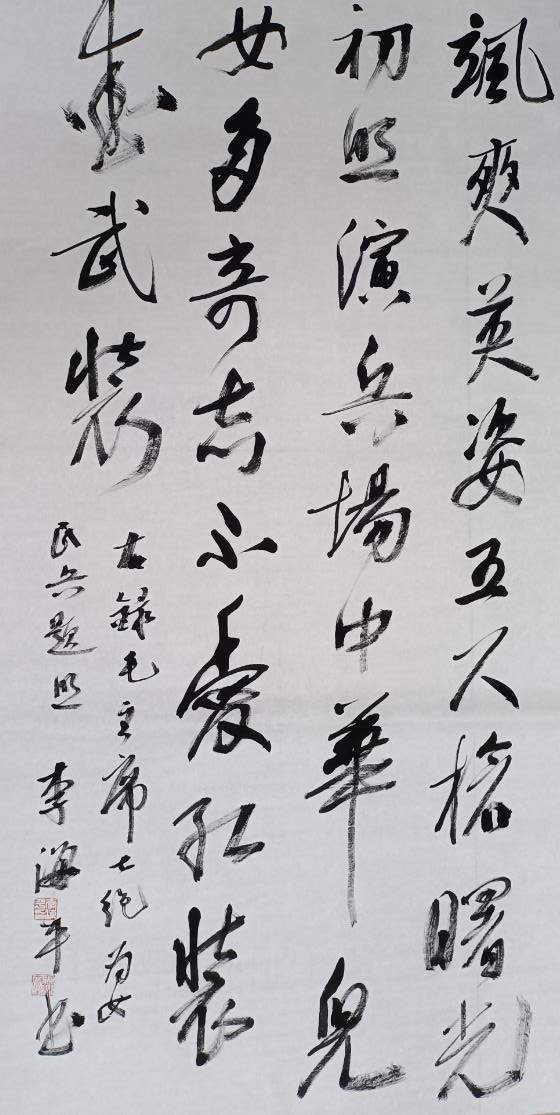 颯爽英姿五尺槍曙光
初照演兵場中華兒
女多奇志不愛紅裝
愛武裝
右錄毛主席七絕為女
民兵題照 李海平书